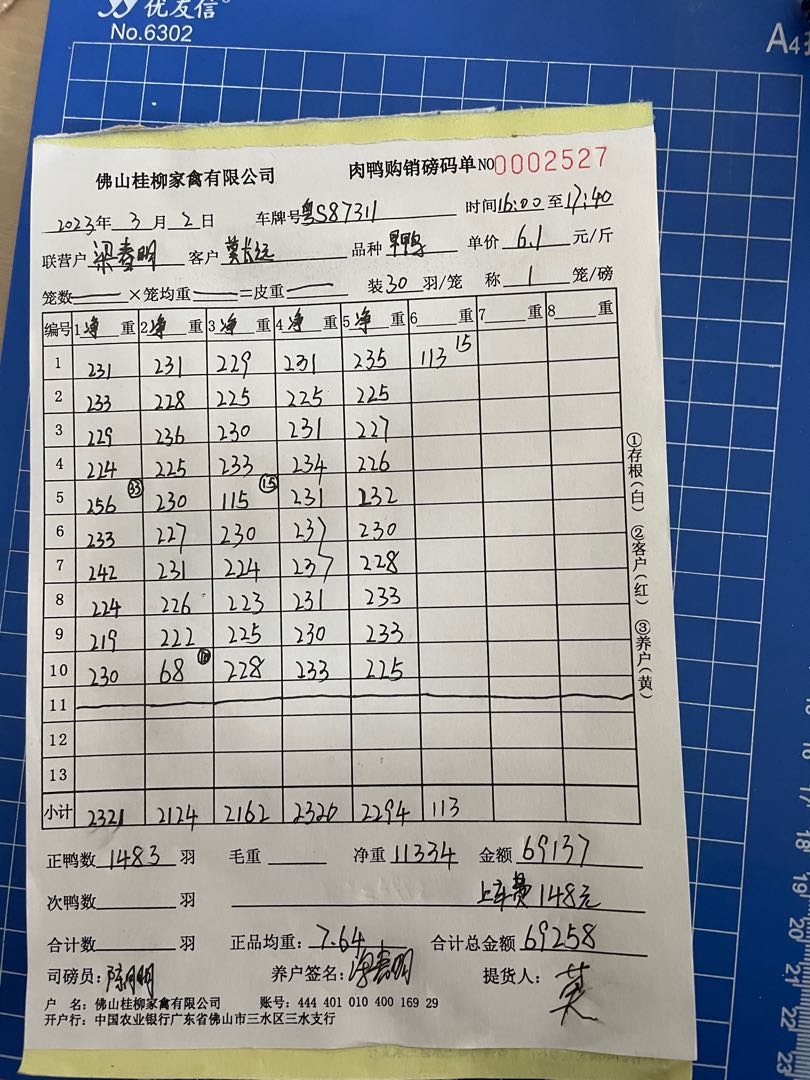 优友信
No.6302
A4
佛山桂柳家禽有限公司 肉鸭购销磅码单 NO 0002527
2023年3月2日 车牌号 粤S87311 时间 16:00 至 17:40
联营户 梁春明 客户 莫长远 品种 旱鸭 单价 6.1 元/斤
笼数 ×笼均重 =皮重 装 30 羽/笼 称 1 笼/磅
编号 1净重 2净重 3净重 4净重 5净重 6重 7重 8重
1 231 231 229 231 235 113 15
2 233 228 225 225 225
3 229 236 230 231 227
4 224 225 233 234 226
5 256 33 230 115 15 231 232
6 233 227 230 237 230
7 242 231 224 237 228
8 224 226 223 231 233
9 219 222 225 230 233
10 230 68 228 233 225
11
12
13
小计 2321 2124 2162 2320 2294 113
①存根(白) ②客户(红) ③养户(黄)
正鸭数 1483 羽 毛重 净重 11334 金额 69137
次鸭数 羽 上车费 148元
合计数 羽 正品均重: 7.64 合计总金额 69258
司磅员: 养户签名: 梁春明 提货人: 莫
户 名: 佛山桂柳家禽有限公司 账号: 444 401 010 400 169 29
开户行: 中国农业银行广东省佛山市三水区三水支行
16
17
18
19
20
21
22
23